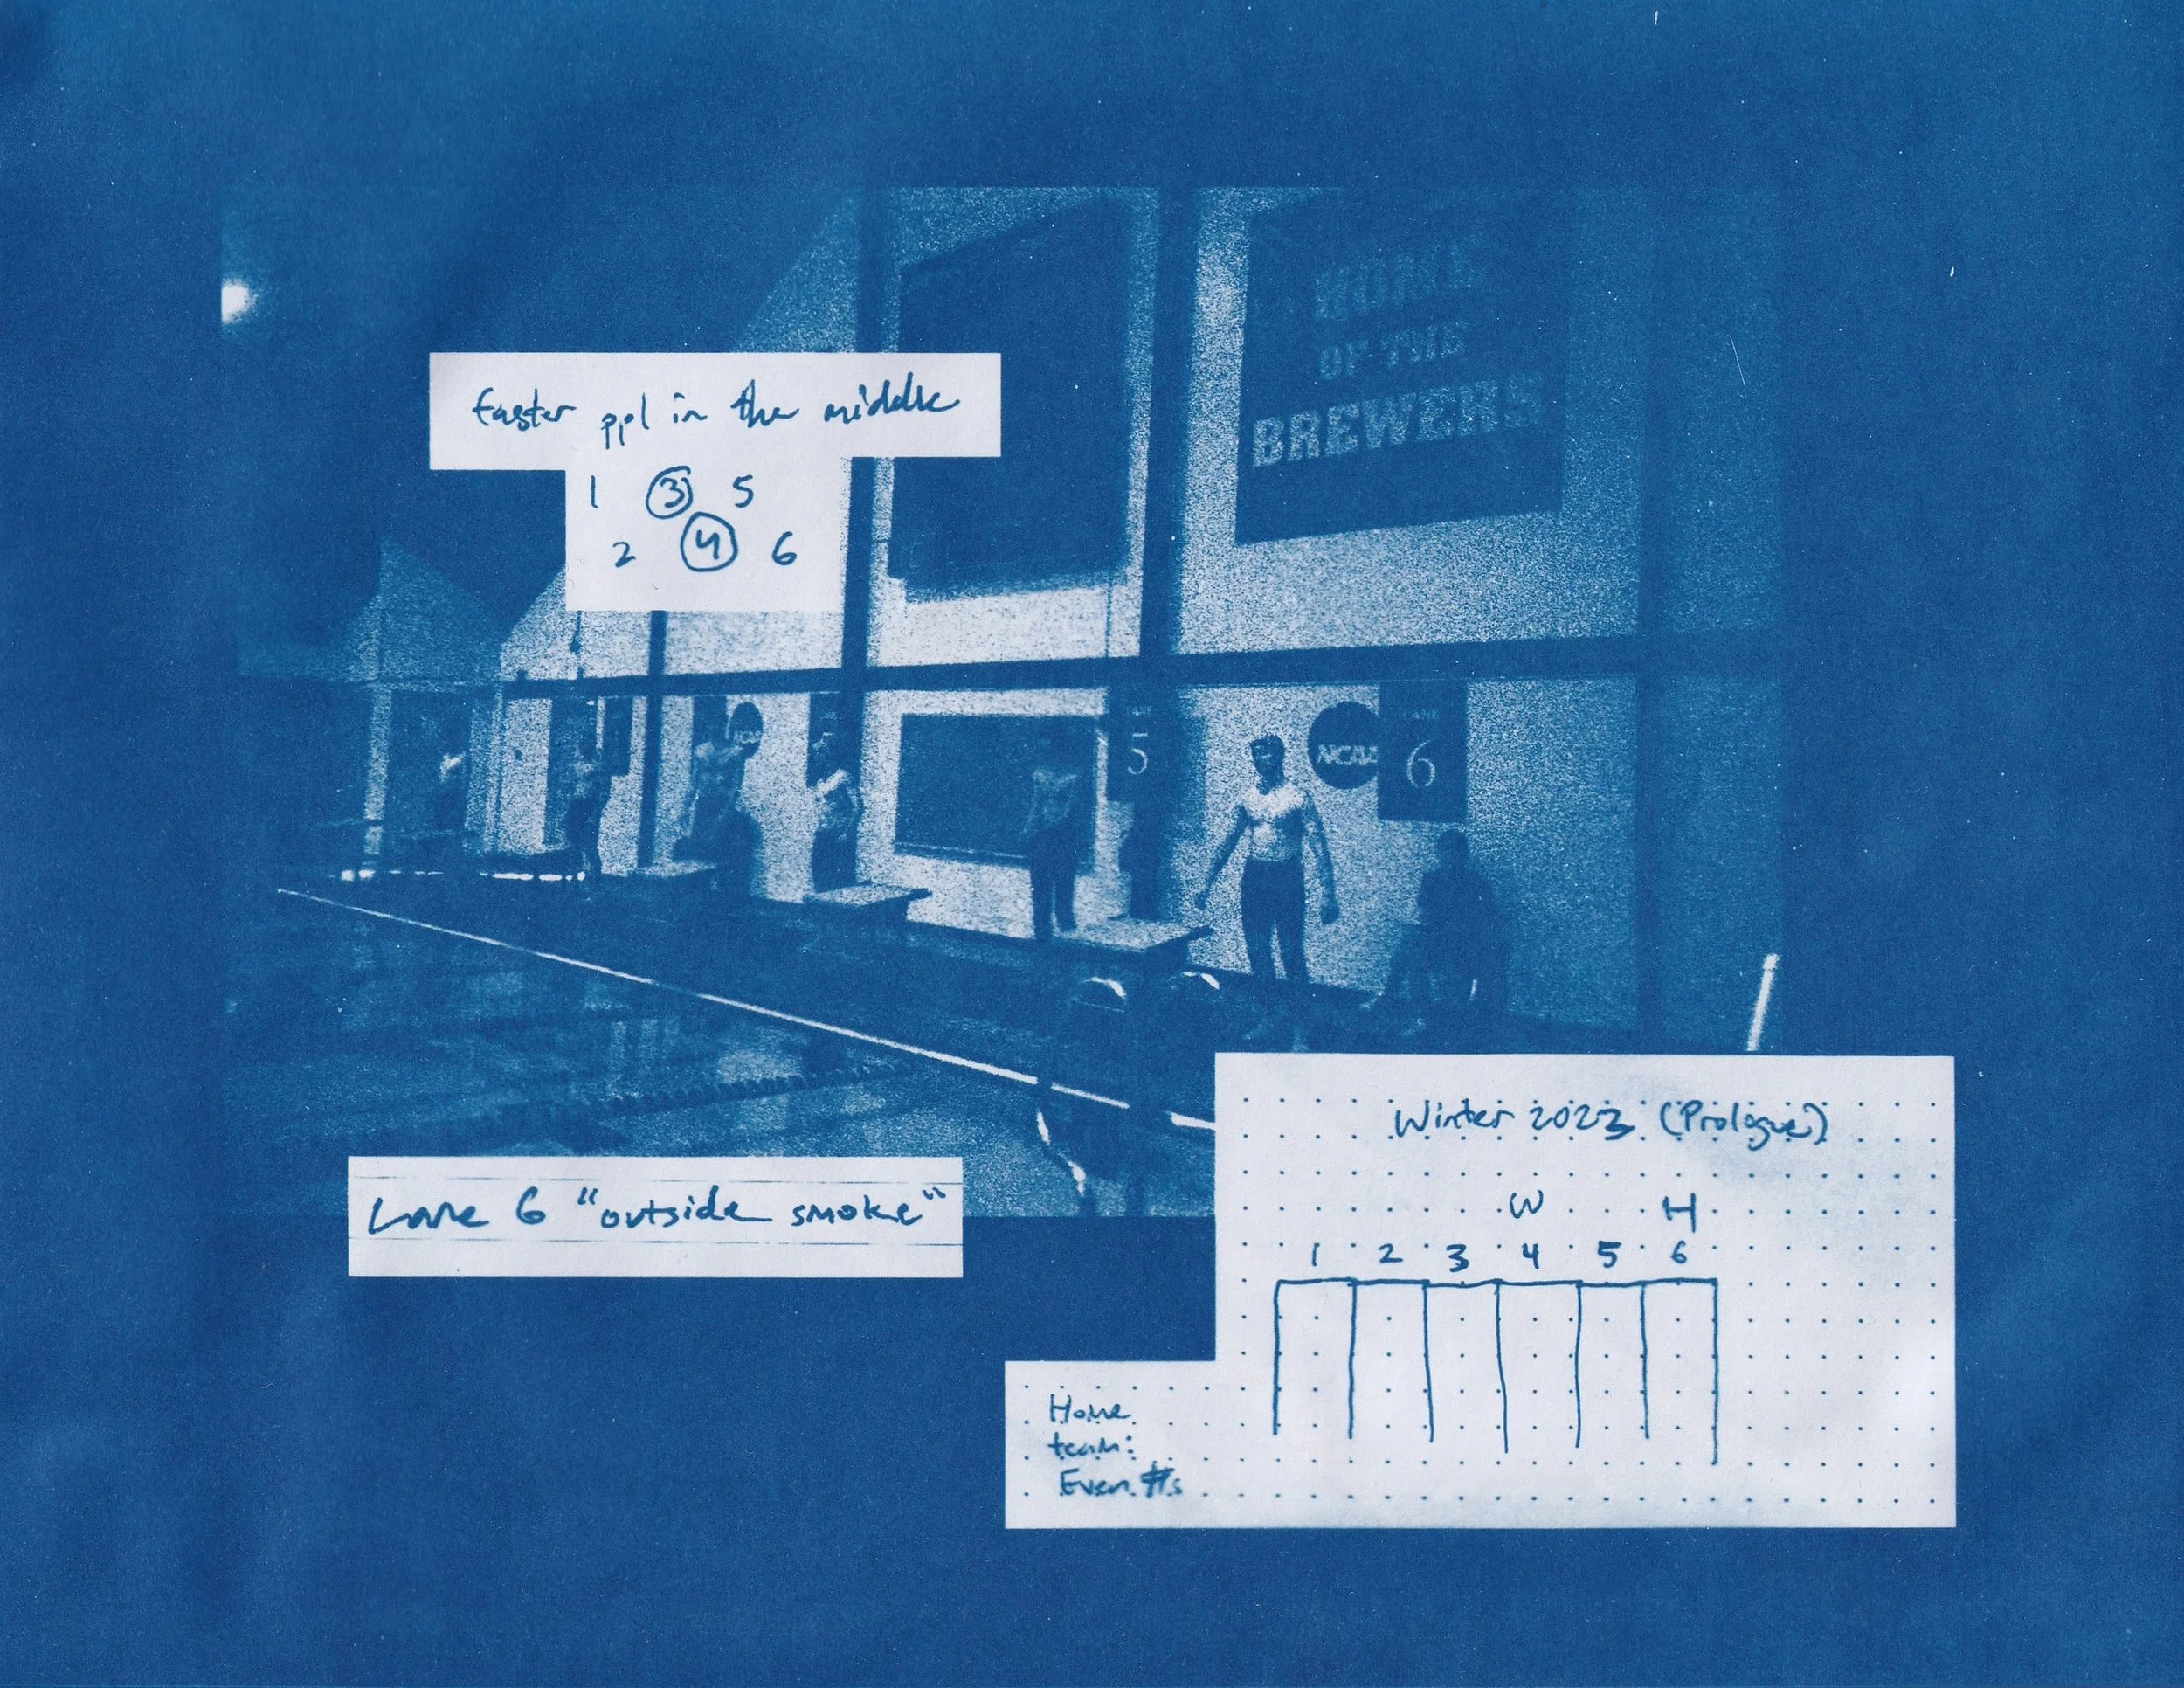 HOME
OF THE
BREWERS
faster ppl in the middle
1 3 5
2 4 6
NCAA
5
NCAA
LANE
6
Lane 6 "outside smoke"
Winter 2023 (Prologue)
W H
1 2 3 4 5 6
Home
team:
Even #s